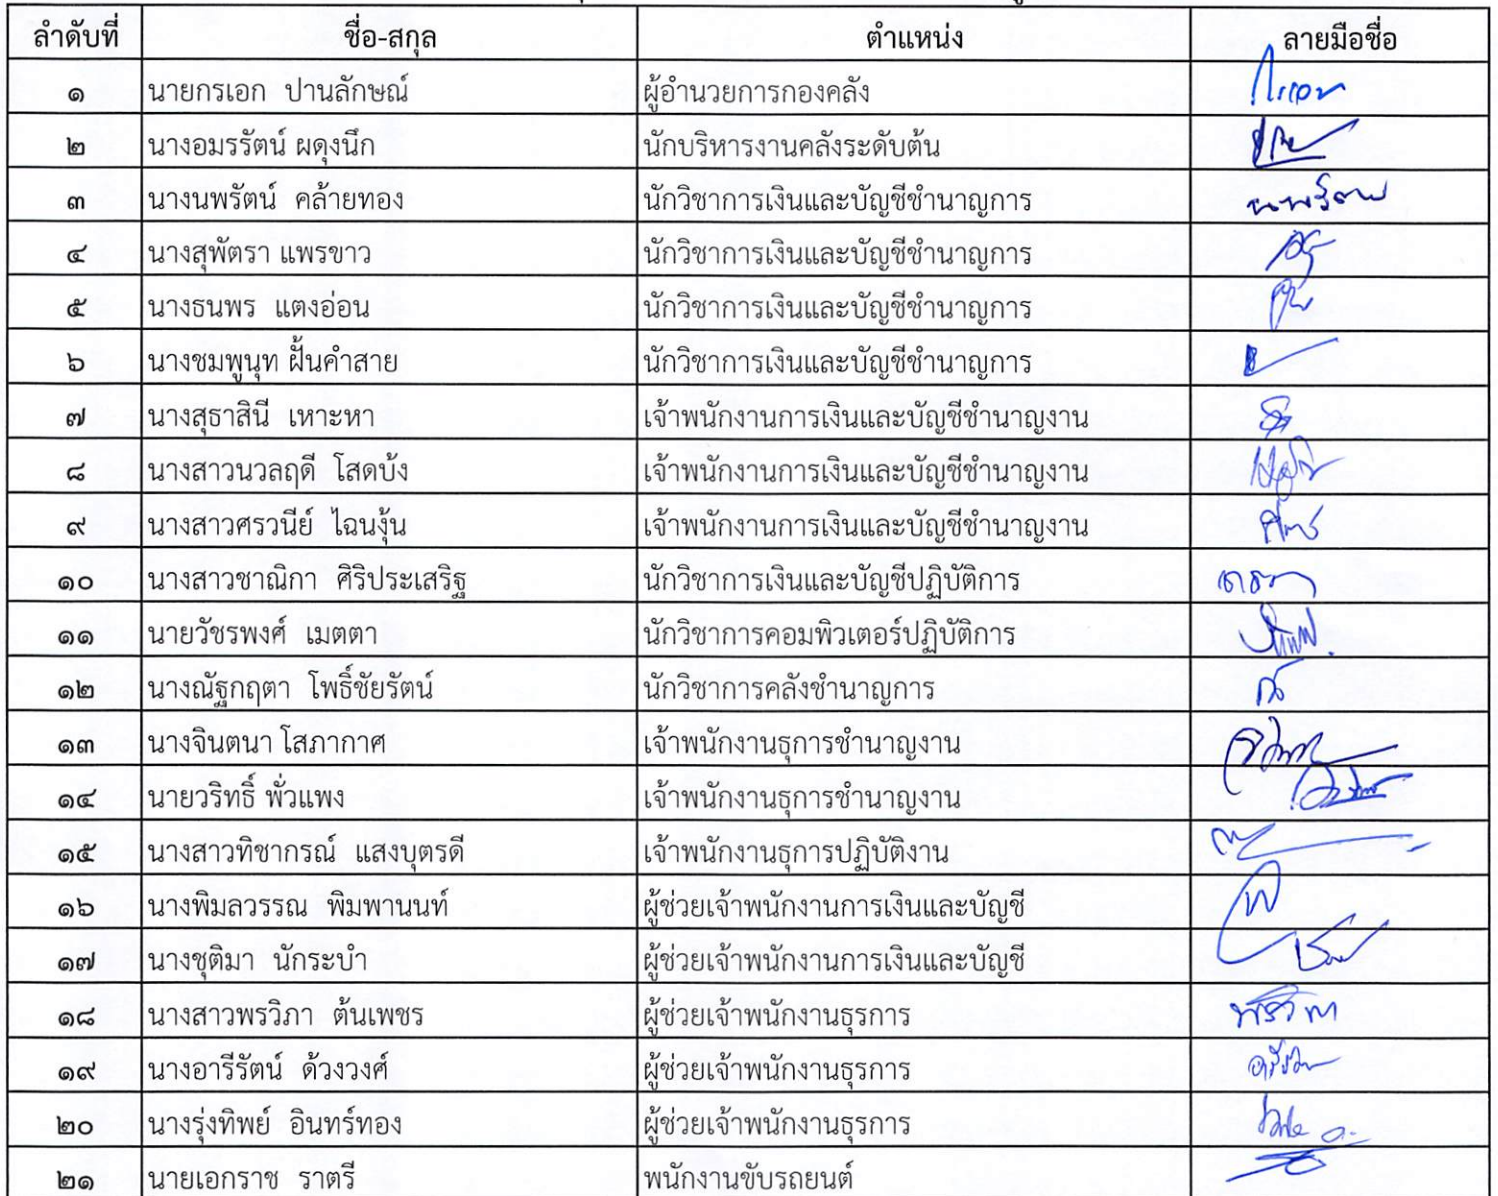 ลำดับที่ ชื่อ-สกุล ตำแหน่ง ลายมือชื่อ
๑ นายกรเอก ปานลักษณ์ ผู้อำนวยการกองคลัง
๒ นางอมรรัตน์ ผดุงนึก นักบริหารงานคลังระดับต้น
๓ นางนพรัตน์ คล้ายทอง นักวิชาการเงินและบัญชีชำนาญการ นพรัตน์
๔ นางสุพัตรา แพรขาว นักวิชาการเงินและบัญชีชำนาญการ
๕ นางธนพร แตงอ่อน นักวิชาการเงินและบัญชีชำนาญการ
๖ นางชมพูนุท ฝั้นคำสาย นักวิชาการเงินและบัญชีชำนาญการ
๗ นางสุธาสินี เหาะหา เจ้าพนักงานการเงินและบัญชีชำนาญงาน
๘ นางสาวนวลฤดี โสดบ้ง เจ้าพนักงานการเงินและบัญชีชำนาญงาน
๙ นางสาวศรวนีย์ ไฉนงุ้น เจ้าพนักงานการเงินและบัญชีชำนาญงาน
๑๐ นางสาวชาณิกา ศิริประเสริฐ นักวิชาการเงินและบัญชีปฏิบัติการ
๑๑ นายวัชรพงศ์ เมตตา นักวิชาการคอมพิวเตอร์ปฏิบัติการ
๑๒ นางณัฐกฤตา โพธิ์ชัยรัตน์ นักวิชาการคลังชำนาญการ
๑๓ นางจินตนา โสภากาศ เจ้าพนักงานธุการชำนาญงาน
๑๔ นายวริทธิ์ พั่วแพง เจ้าพนักงานธุการชำนาญงาน
๑๕ นางสาวทิชากรณ์ แสงบุตรดี เจ้าพนักงานธุการปฏิบัติงาน
๑๖ นางพิมลวรรณ พิมพานนท์ ผู้ช่วยเจ้าพนักงานการเงินและบัญชี
๑๗ นางชุติมา นักระบำ ผู้ช่วยเจ้าพนักงานการเงินและบัญชี
๑๘ นางสาวพรวิภา ต้นเพชร ผู้ช่วยเจ้าพนักงานธุรการ พรวิภา
๑๙ นางอารีรัตน์ ด้วงวงศ์ ผู้ช่วยเจ้าพนักงานธุรการ
๒๐ นางรุ่งทิพย์ อินทร์ทอง ผู้ช่วยเจ้าพนักงานธุรการ
๒๑ นายเอกราช ราตรี พนักงานขับรถยนต์